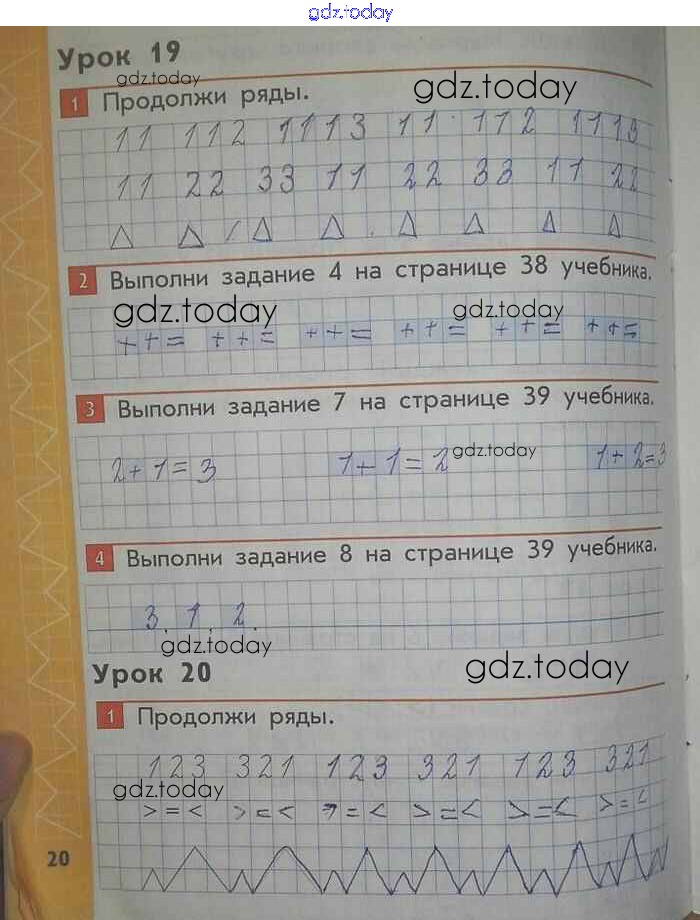 gdz.today
Урок 19
gdz.today
1 Продолжи ряды.
gdz.today
11 112 1113 11 112 1113
11 22 33 11 22 33 11 22
2 Выполни задание 4 на странице 38 учебника.
gdz.today gdz.today
++= ++= ++= ++= ++= ++=
3 Выполни задание 7 на странице 39 учебника.
2+1=3 1+1=2 gdz.today 1+2=3
4 Выполни задание 8 на странице 39 учебника.
3, 1, 2.
gdz.today
Урок 20
gdz.today
1 Продолжи ряды.
123 321 123 321 123 321
gdz.today
>=< >=< >=< >=< >=< >=<
20